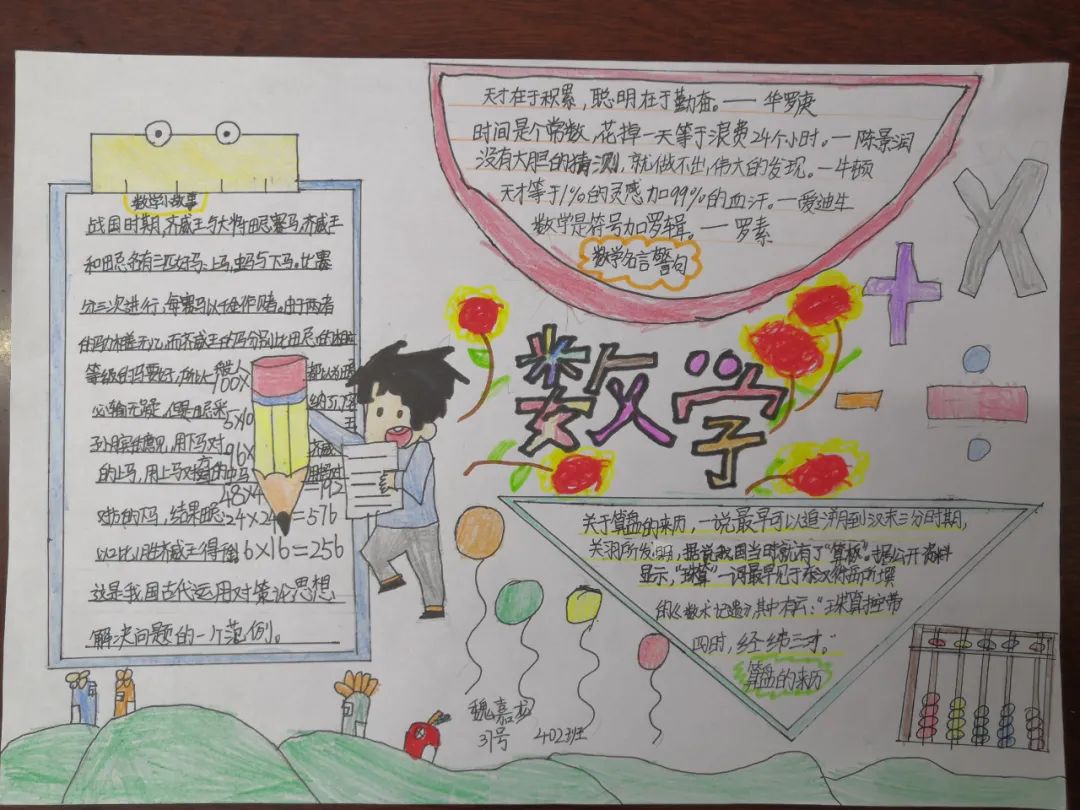 数学小故事
战国时期,齐威王与大将田忌赛马,齐威王
和田忌各有三匹好马:上马,中马与下马。比赛
分三次进行,每赛马以千金作赌。由于两者
的马力相差无几,而齐威王的马分别比田忌的相应
等级的马要好,所以一般人都以为田忌
必输无疑,但是田忌采纳了门客
孙膑的意见,用下马对齐威王
的上马,用上马对齐威王的中马
对方的下马,结果田忌
以2比1胜齐威王得
这是我国古代运用对策论思想
解决问题的一个范例。
100×
5×
96×
48×4=192
24×24=576
16×16=256
天才在于积累,聪明在于勤奋。——华罗庚
时间是个常数,花掉一天等于浪费24个小时。—陈景润
没有大胆的猜测,就做不出伟大的发现。—牛顿
天才等于1%的灵感加99%的血汗。—爱迪生
数学是符号加罗辑。—罗素
数学名言警句
数学
关于算盘的来历,一说最早可以追溯到汉末三分时期,
关羽所发明,据说我国当时就有了"算板"。据公开资料
显示,"珠算"一词最早见于汉代徐岳所撰
的《数术记遗》,其中有云:"珠算控带
四时,经纬三才。"
算盘的来历
魏嘉龙
31号 402班